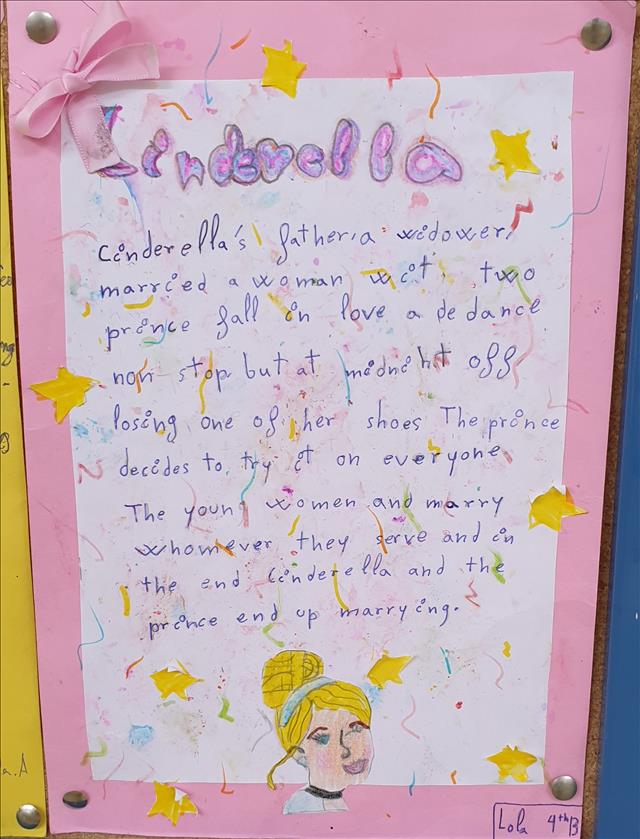 Cinderella
Cinderella's father, a widower,
married a woman wit. two
prince fall in love a de dance
non stop but at midni ht off
losing one of her shoes The prince
decides to try it on everyone.
The young women and marry
whomever they serve and in
the end Cinderella and the
prince end up marrying.
Lola 4thB